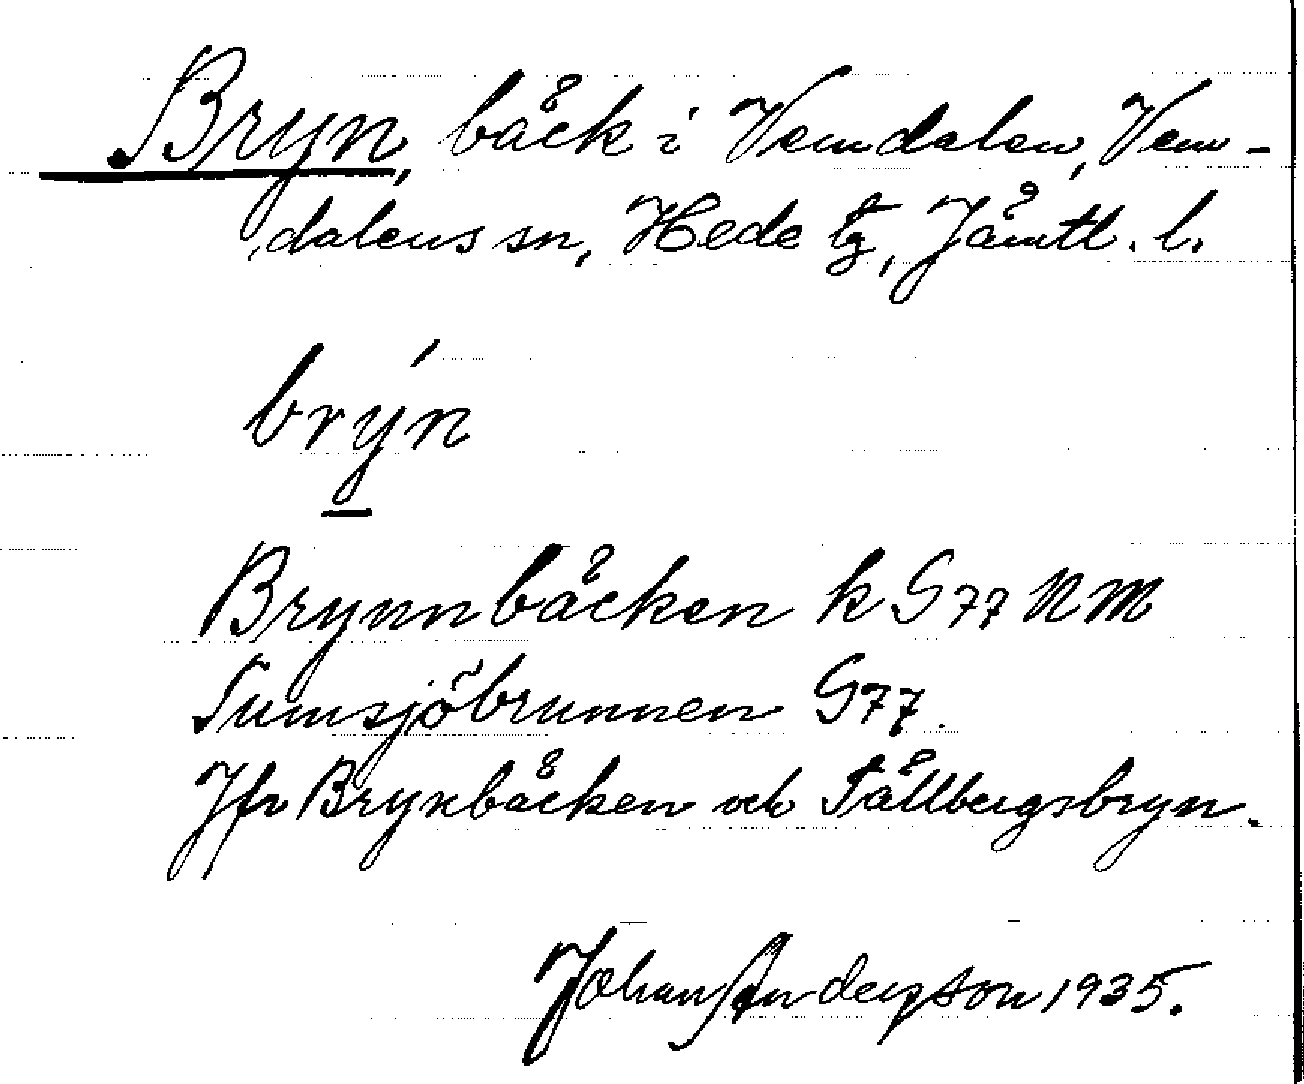 Bryn, bäck i Vemdalen, Vem-
dalens sn, Hede tg, Jämtl. l.
brýn
Brynnbäcken k G77 NM
Tumsjöbrunnen G77.
Jfr Brynbäcken och Tållbergsbryn.
Johan Anderzson 1935.